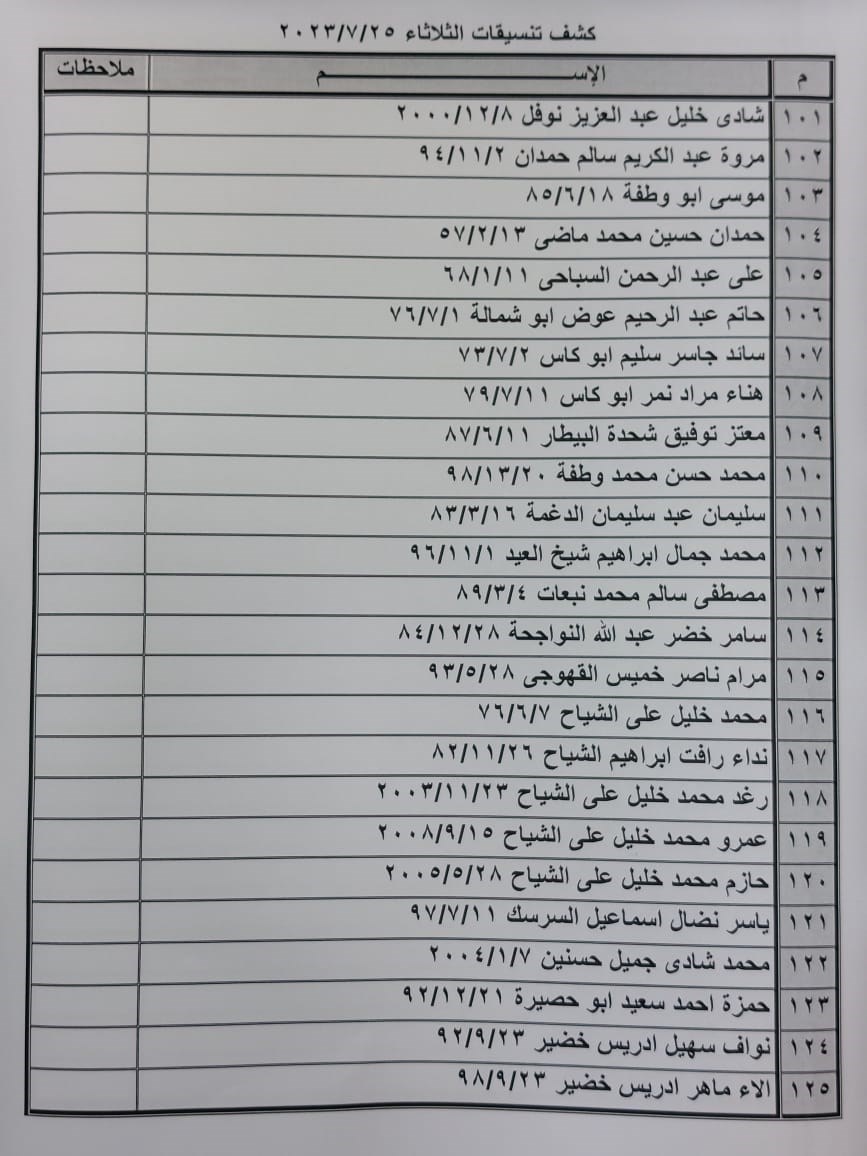 كشف تنسيقات الثلاثاء ٢٠٢٣/٧/٢٥
م الإســـم ملاحظات
١٠١ شادى خليل عبد العزيز نوفل ٢٠٠٠/١٢/٨
١٠٢ مروة عبد الكريم سالم حمدان ٩٤/١١/٢
١٠٣ موسى ابو وطفة ٨٥/٦/١٨
١٠٤ حمدان حسين محمد ماضى ٥٧/٢/١٣
١٠٥ على عبد الرحمن السباحى ٦٨/١/١١
١٠٦ حاتم عبد الرحيم عوض ابو شمالة ٧٦/٧/١
١٠٧ سائد جاسر سليم ابو كاس ٧٣/٧/٢
١٠٨ هناء مراد نمر ابو كاس ٧٩/٧/١١
١٠٩ معتز توفيق شحدة البيطار ٨٧/٦/١١
١١٠ محمد حسن محمد وطفة ٩٨/١٣/٢٠
١١١ سليمان عبد سليمان الدغمة ٨٣/٣/١٦
١١٢ محمد جمال ابراهيم شيخ العيد ٩٦/١١/١
١١٣ مصطفى سالم محمد نبعات ٨٩/٣/٤
١١٤ سامر خضر عبد الله النواجحة ٨٤/١٢/٢٨
١١٥ مرام ناصر خميس القهوجى ٩٣/٥/٢٨
١١٦ محمد خليل على الشياح ٧٦/٦/٧
١١٧ نداء رافت ابراهيم الشياح ٨٢/١١/٢٦
١١٨ رغد محمد خليل على الشياح ٢٠٠٣/١١/٢٣
١١٩ عمرو محمد خليل على الشياح ٢٠٠٨/٩/١٥
١٢٠ حازم محمد خليل على الشياح ٢٠٠٥/٥/٢٨
١٢١ ياسر نضال اسماعيل السرسك ٩٧/٧/١١
١٢٢ محمد شادى جميل حسنين ٢٠٠٤/١/٧
١٢٣ حمزة احمد سعيد ابو حصيرة ٩٢/١٢/٢١
١٢٤ نواف سهيل ادريس خضير ٩٢/٩/٢٣
١٢٥ الاء ماهر ادريس خضير ٩٨/٩/٢٣